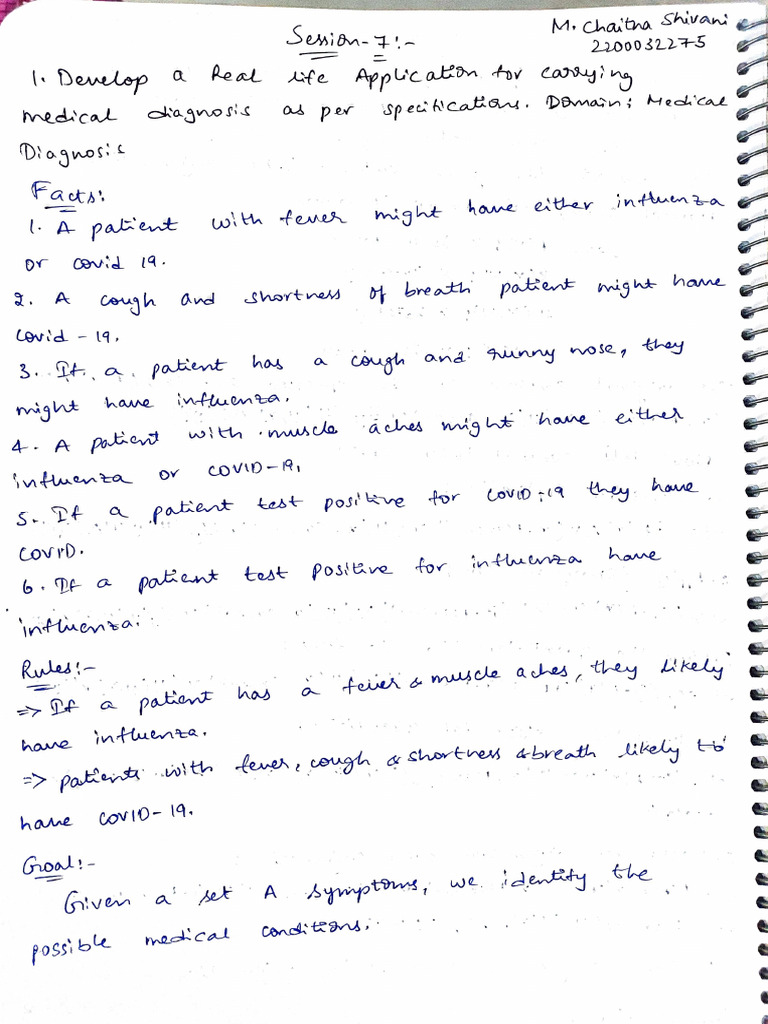 M. Chaitna Shivani
Session-7:-
2200032275
1. Develop a Real life Application for carrying
medical diagnosis as per specifications. Domain: Medical
Diagnosis
Facts:
1. A patient with fever might have either influenza
or covid 19.
2. A cough and shortness of breath patient might have
covid-19.
3. If a patient has a cough and runny nose, they
might have influenza.
4. A patient with muscle aches might have either
influenza or COVID-19.
5. If a patient test positive for COVID-19 they have
COVID.
6. If a patient test positive for influenza have
influenza.
Rules:-
=> If a patient has a fever & muscle aches, they likely
have influenza.
=> patients with fever, cough & shortness & breath likely to
have COVID-19.
Goal:-
Given a set A symptoms, we identify the
possible medical conditions.